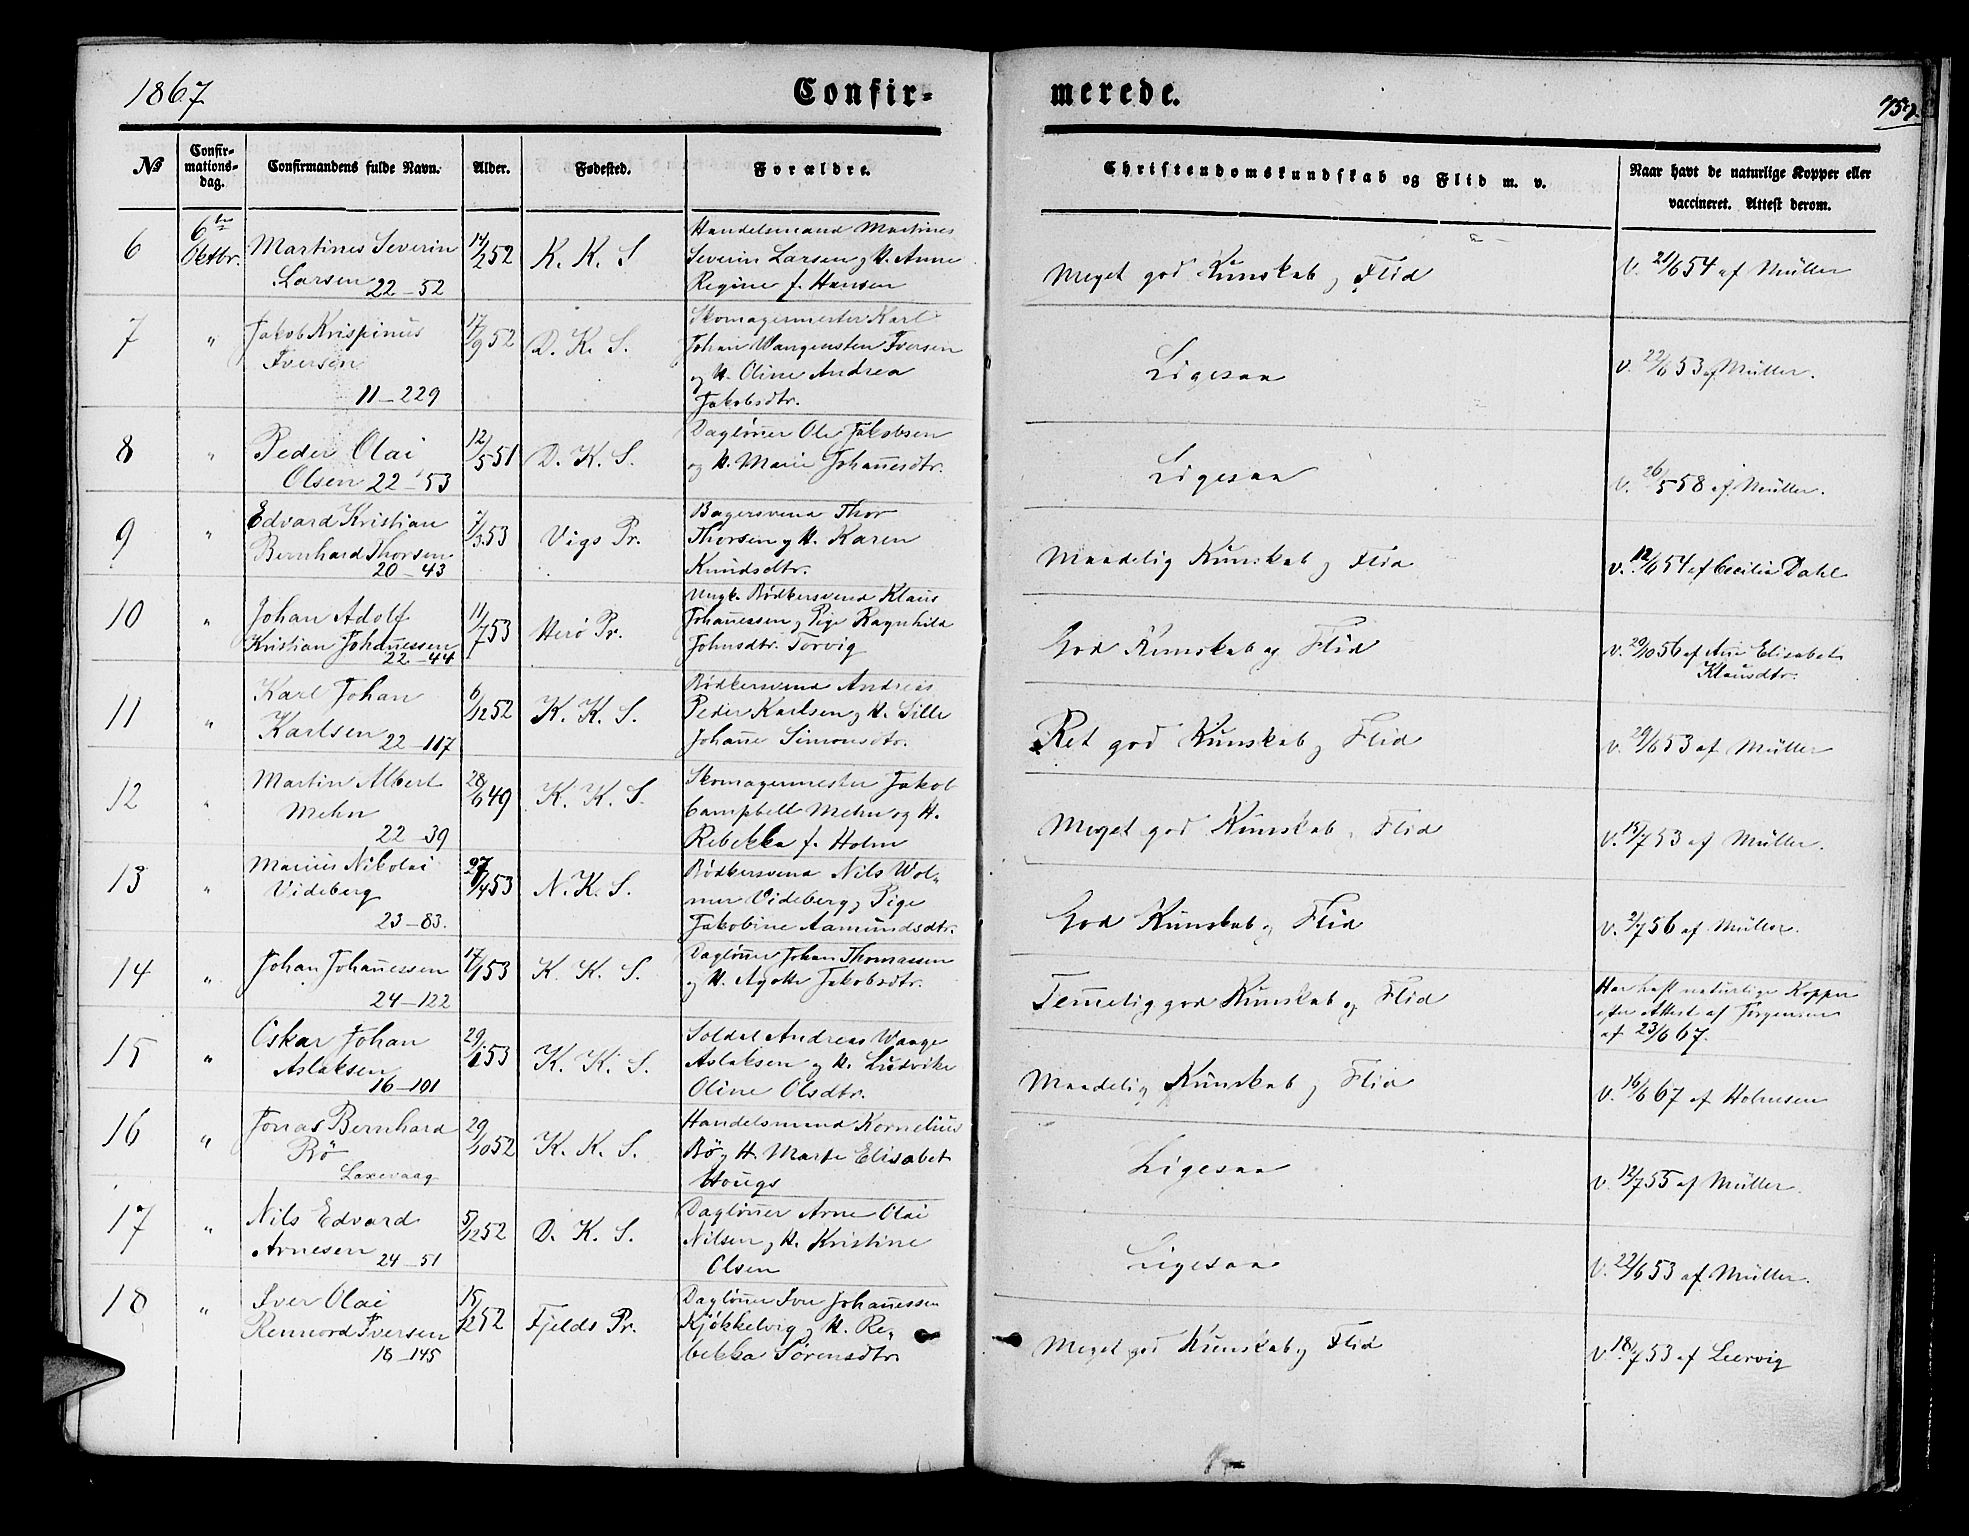 1867
Confir-
merede.
No
Confir-
mations-
dag.
Confirmandens fulde Navn.
Alder.
Fødested.
Forældre.
Christendomskundskab og Flid m. v.
Naar havt de naturlige Kopper eller
vaccineret. Attest derom.
6
6te
Oktbr.
Martines Severin
Larsen 22-52
14/2 52
K. K. S
Handelsmand Martines
Severin Larsen og H. Anne
Regine f. Hansen
Meget god Kunskab og Flid
V. 21/6 54 af Müller
7
"
Jakob Krispinus
Iversen
11-229
17/9 52
D. K. S.
Skomagermester Karl
Johan Wangensten Iversen
og H. Oline Andrea
Jakobsdtr.
Ligesaa
V. 22/6 53 af Müller.
8
"
Peder Olai
Olsen 22-53
12/5 51
D. K. S.
Dagløner Ole Jakobsen
og H. Marie Johanesdtr.
Ligesaa
V. 26/5 58 af Müller.
9
"
Edvard Kristian
Bernhard Thorsen
20-43
7/3 53
Vigs Pr.
Bagersvend Thor
Thorsen og H. Karen
Knudsdtr.
Maadelig Kunskab og Flid
V. 12/6 54 af Cecilia Dahl
10
"
Johan Adolf
Kristian Johanessen
22-44
11/7 53
Herø Pr.
Ungk. Bødkersvend Klaus
Johanessen og Pige Ragnhild
Johnsdtr. Torvig
God Kunskab og Flid
V. 29/10 56 af Ane Elisabet
Klausdtr.
11
"
Karl Johan
Karlsen 22-117
6/12 52
K. K. S.
Bødkersvend Andreas
Peder Karlsen og H. Sille
Johane Simonsdtr.
Ret god Kunskab og Flid
V. 29/6 53 af Müller
12
"
Martin Albert
Mehn
22-39
28/6 49
K. K. S.
Skomagermester Jakob
Campbell Mehn og H.
Rebekka f. Holm
Meget god Kunskab og Flid
V. 15/7 53 af Müller.
13
"
Marius Nikolai
Videberg
23-83.
27/4 53
N. K. S.
Bødkersvend Nils Wol-
mer Videberg og Pige
Jakobine Aamundsdtr.
God Kunskab og Flid
V. 2/7 56 af Müller.
14
"
Johan Johanessen
24-122
17/1 53
K. K. S.
Dagløner Johan Thomassen
og H. Agotte Jakobsdtr.
Temelig god Kunskab og Flid
Har haft naturlige Kopper
efter Attest af Jørgensen
af 23/6 67.
15
"
Oskar Johan
Aslaksen
16-101
29/1 53
K. K. S.
Soldat Andreas Waage
Aslaksen og H. Ludvike
Oline Olsdtr.
Maadelig Kunskab og Flid
V. 16/6 67 af Holmsen
16
"
Jonas Bernhard
Bø
Laxevaag
29/10 52
K. K. S.
Handelsmand Kornelius
Bø og H. Marte Elisabet
Hougs
Ligesaa
V. 12/7 55 af Müller.
17
"
Nils Edvard
Arnesen 24-51
5/12 52
D. K. S.
Dagløner Arne Olai
Nilsen og H. Kristine
Olsen
Ligesaa
V. 22/6 53 af Müller.
18
"
Iver Olai
Rennord Iversen
18-145
15/12 52
Fjelds Pr.
Dagløner Iver Johanessen
Kjøkkelvig og H. Re-
bekka Sørensdtr.
Meget god Kunskab og Flid
V. 18/7 53 af Leervig